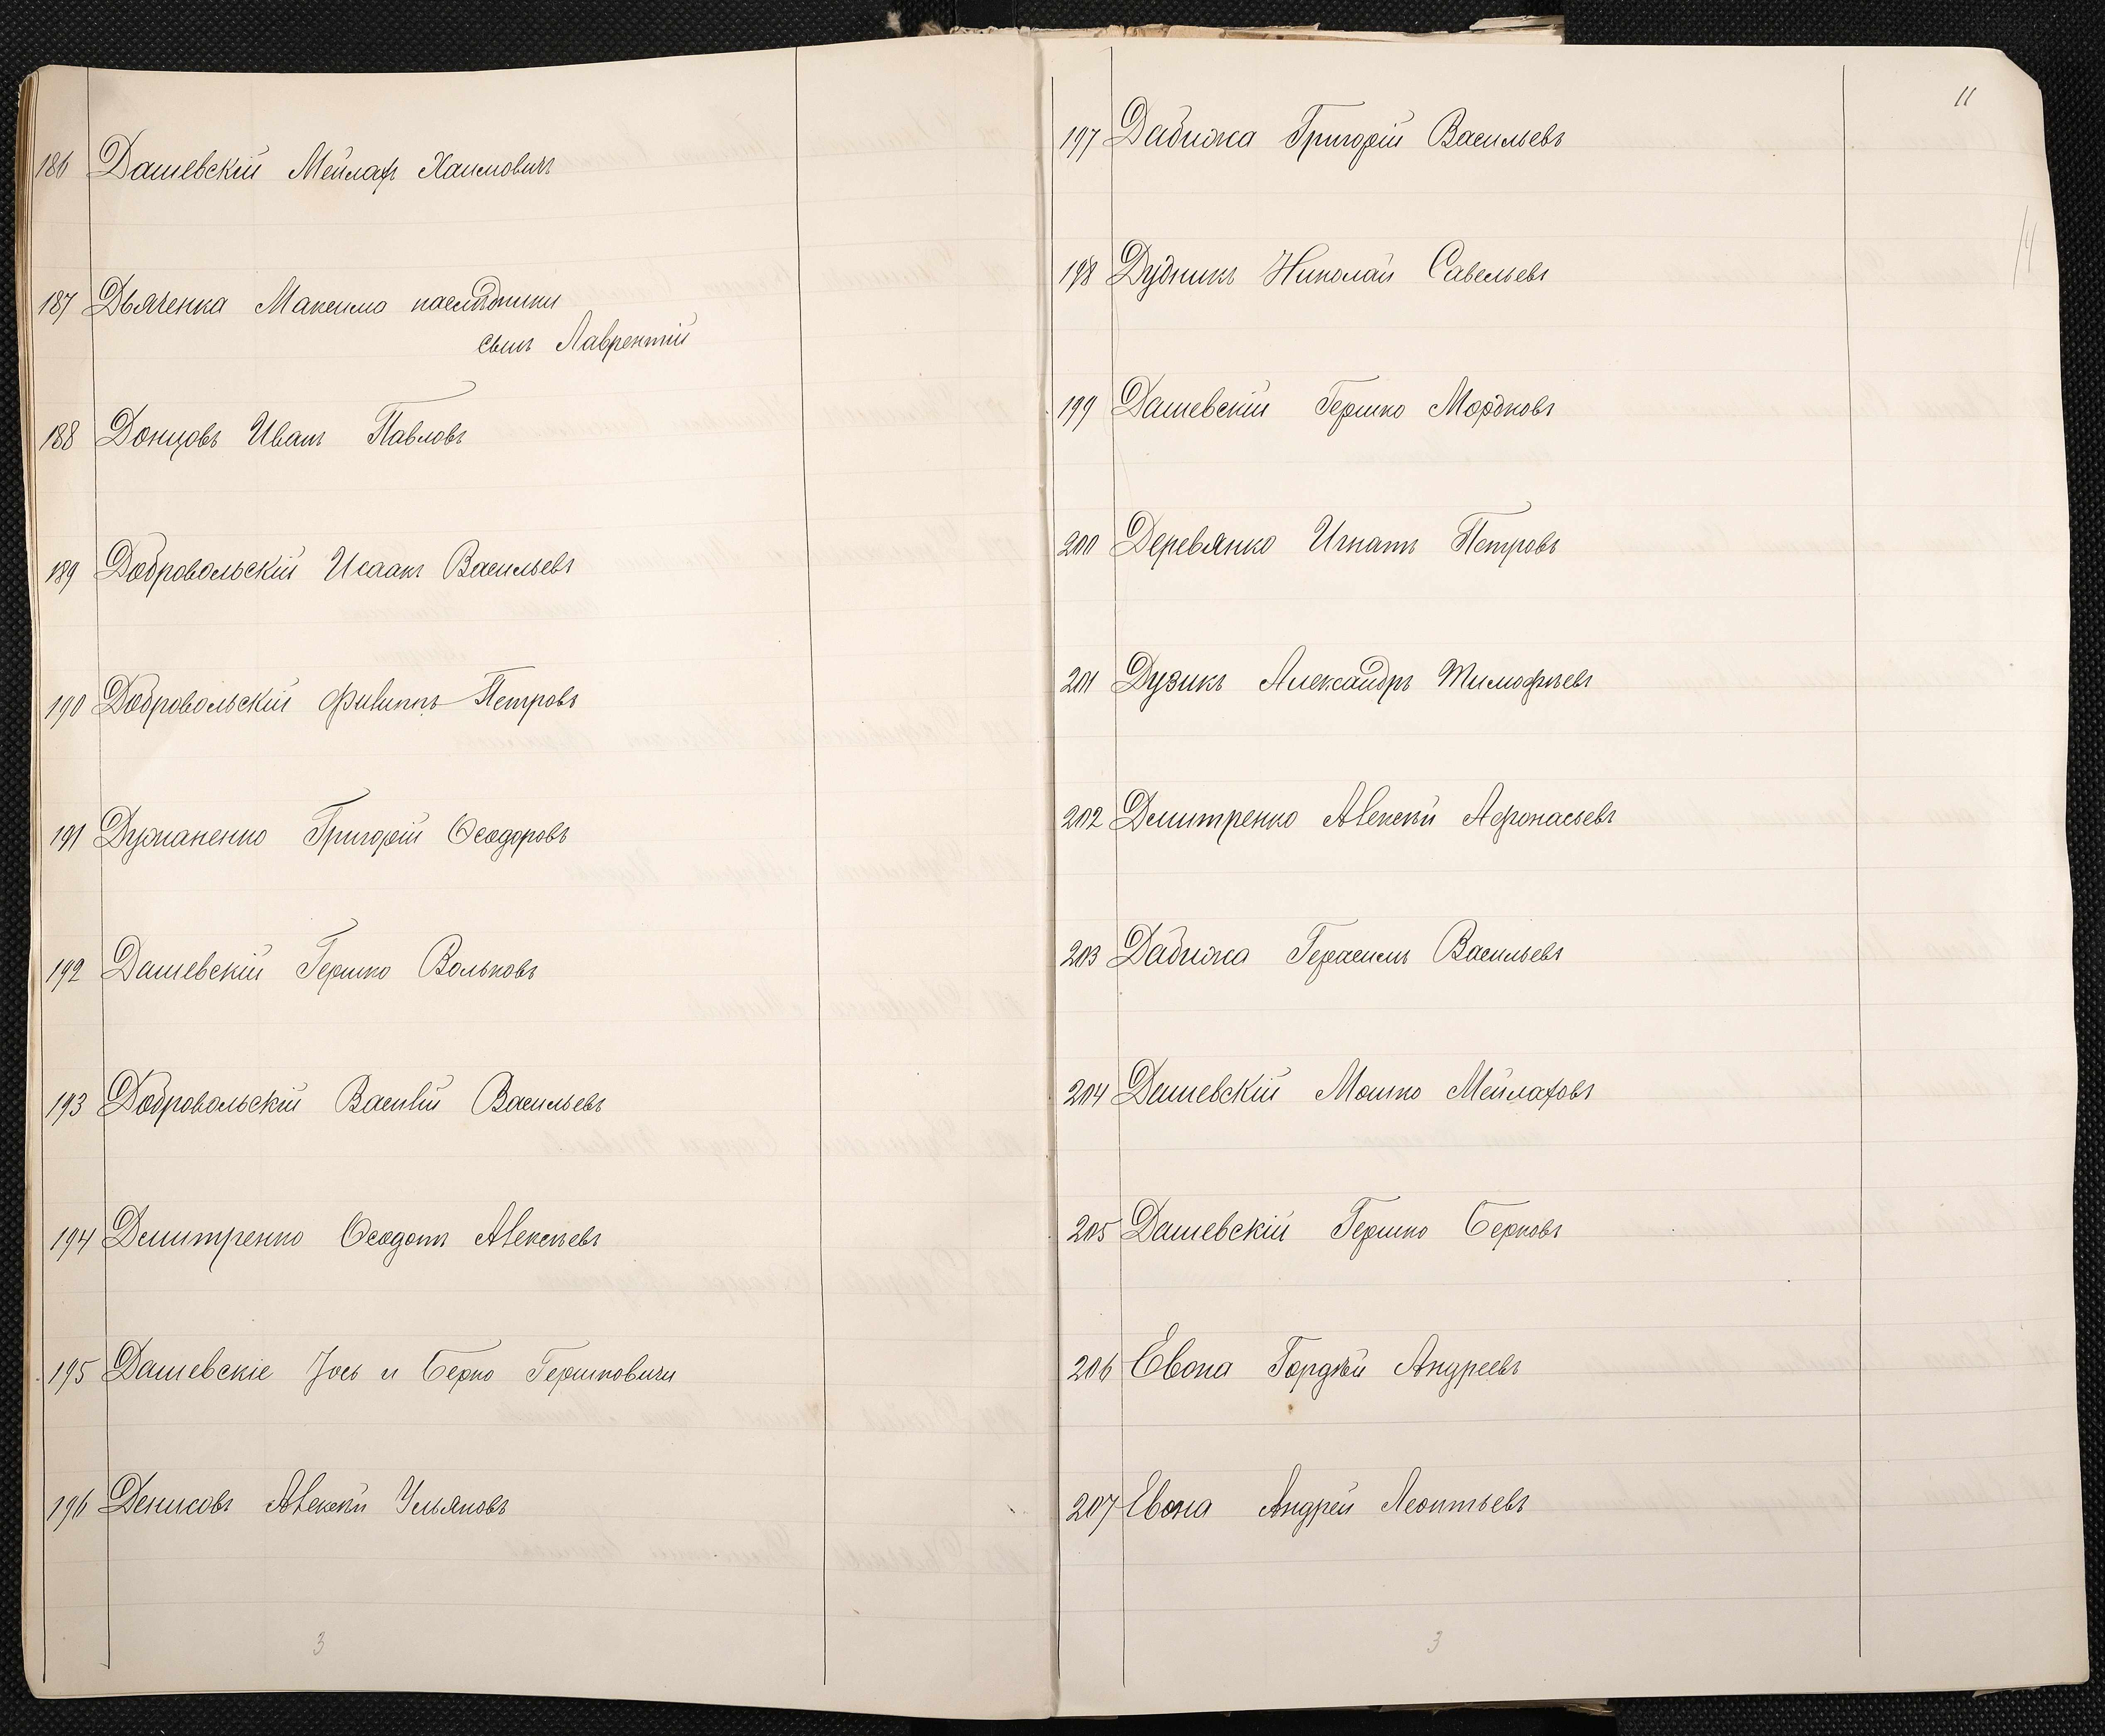 186 Дашевскій Мейлах Хаимовичъ
187 Дьяченка Максима наслѣдники
сынъ Лаврентій
188 Донцовъ Иванъ Павловъ
189 Добровольскій Исаакъ Васильевъ
190 Добровольскій Филиппъ Петровъ
191 Дужаненко Григорій Ѳеодоровъ
192 Дашевскій Гершко Вольковъ
193 Добровольскій Василій Васильевъ
194 Дмитренко Ѳеодотъ Алексѣевъ
195 Дашевскіе Іось и Берко Гершковичи
196 Денисовъ Алексѣй Ульяновъ
3
11
14
197 Дабижа Григорій Васильевъ
198 Дудникъ Николай Савельевъ
199 Дашевскій Гершко Мордковъ
200 Деревянко Игнатъ Петровъ
201 Дузикъ Александръ Тимофѣевъ
202 Дмитренко Алексѣй Афонасьевъ
203 Дабижа Герасимъ Васильевъ
204 Дашевскій Мошко Мейлаховъ
205 Дашевскій Гершко Берковъ
206 Евона Гордѣй Андреевъ
207 Евона Андрей Леонтьевъ
3